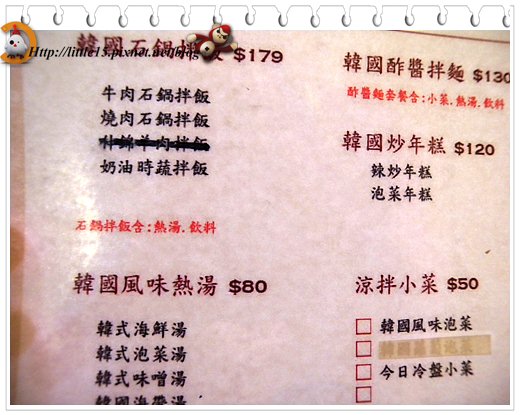 Http://little15.pixnet.net/blog
韓國石鍋拌飯 $179
牛肉石鍋拌飯
燒肉石鍋拌飯
奶油時蔬拌飯
石鍋拌飯含:熱湯.飲料
韓國風味熱湯 $80
韓式海鮮湯
韓式泡菜湯
韓式味噌湯
韓國海帶湯
韓國酢醬拌麵 $130
酢醬麵套餐含:小菜.熱湯.飲料
韓國炒年糕 $120
辣炒年糕
泡菜年糕
涼拌小菜 $50
韓國風味泡菜
今日冷盤小菜